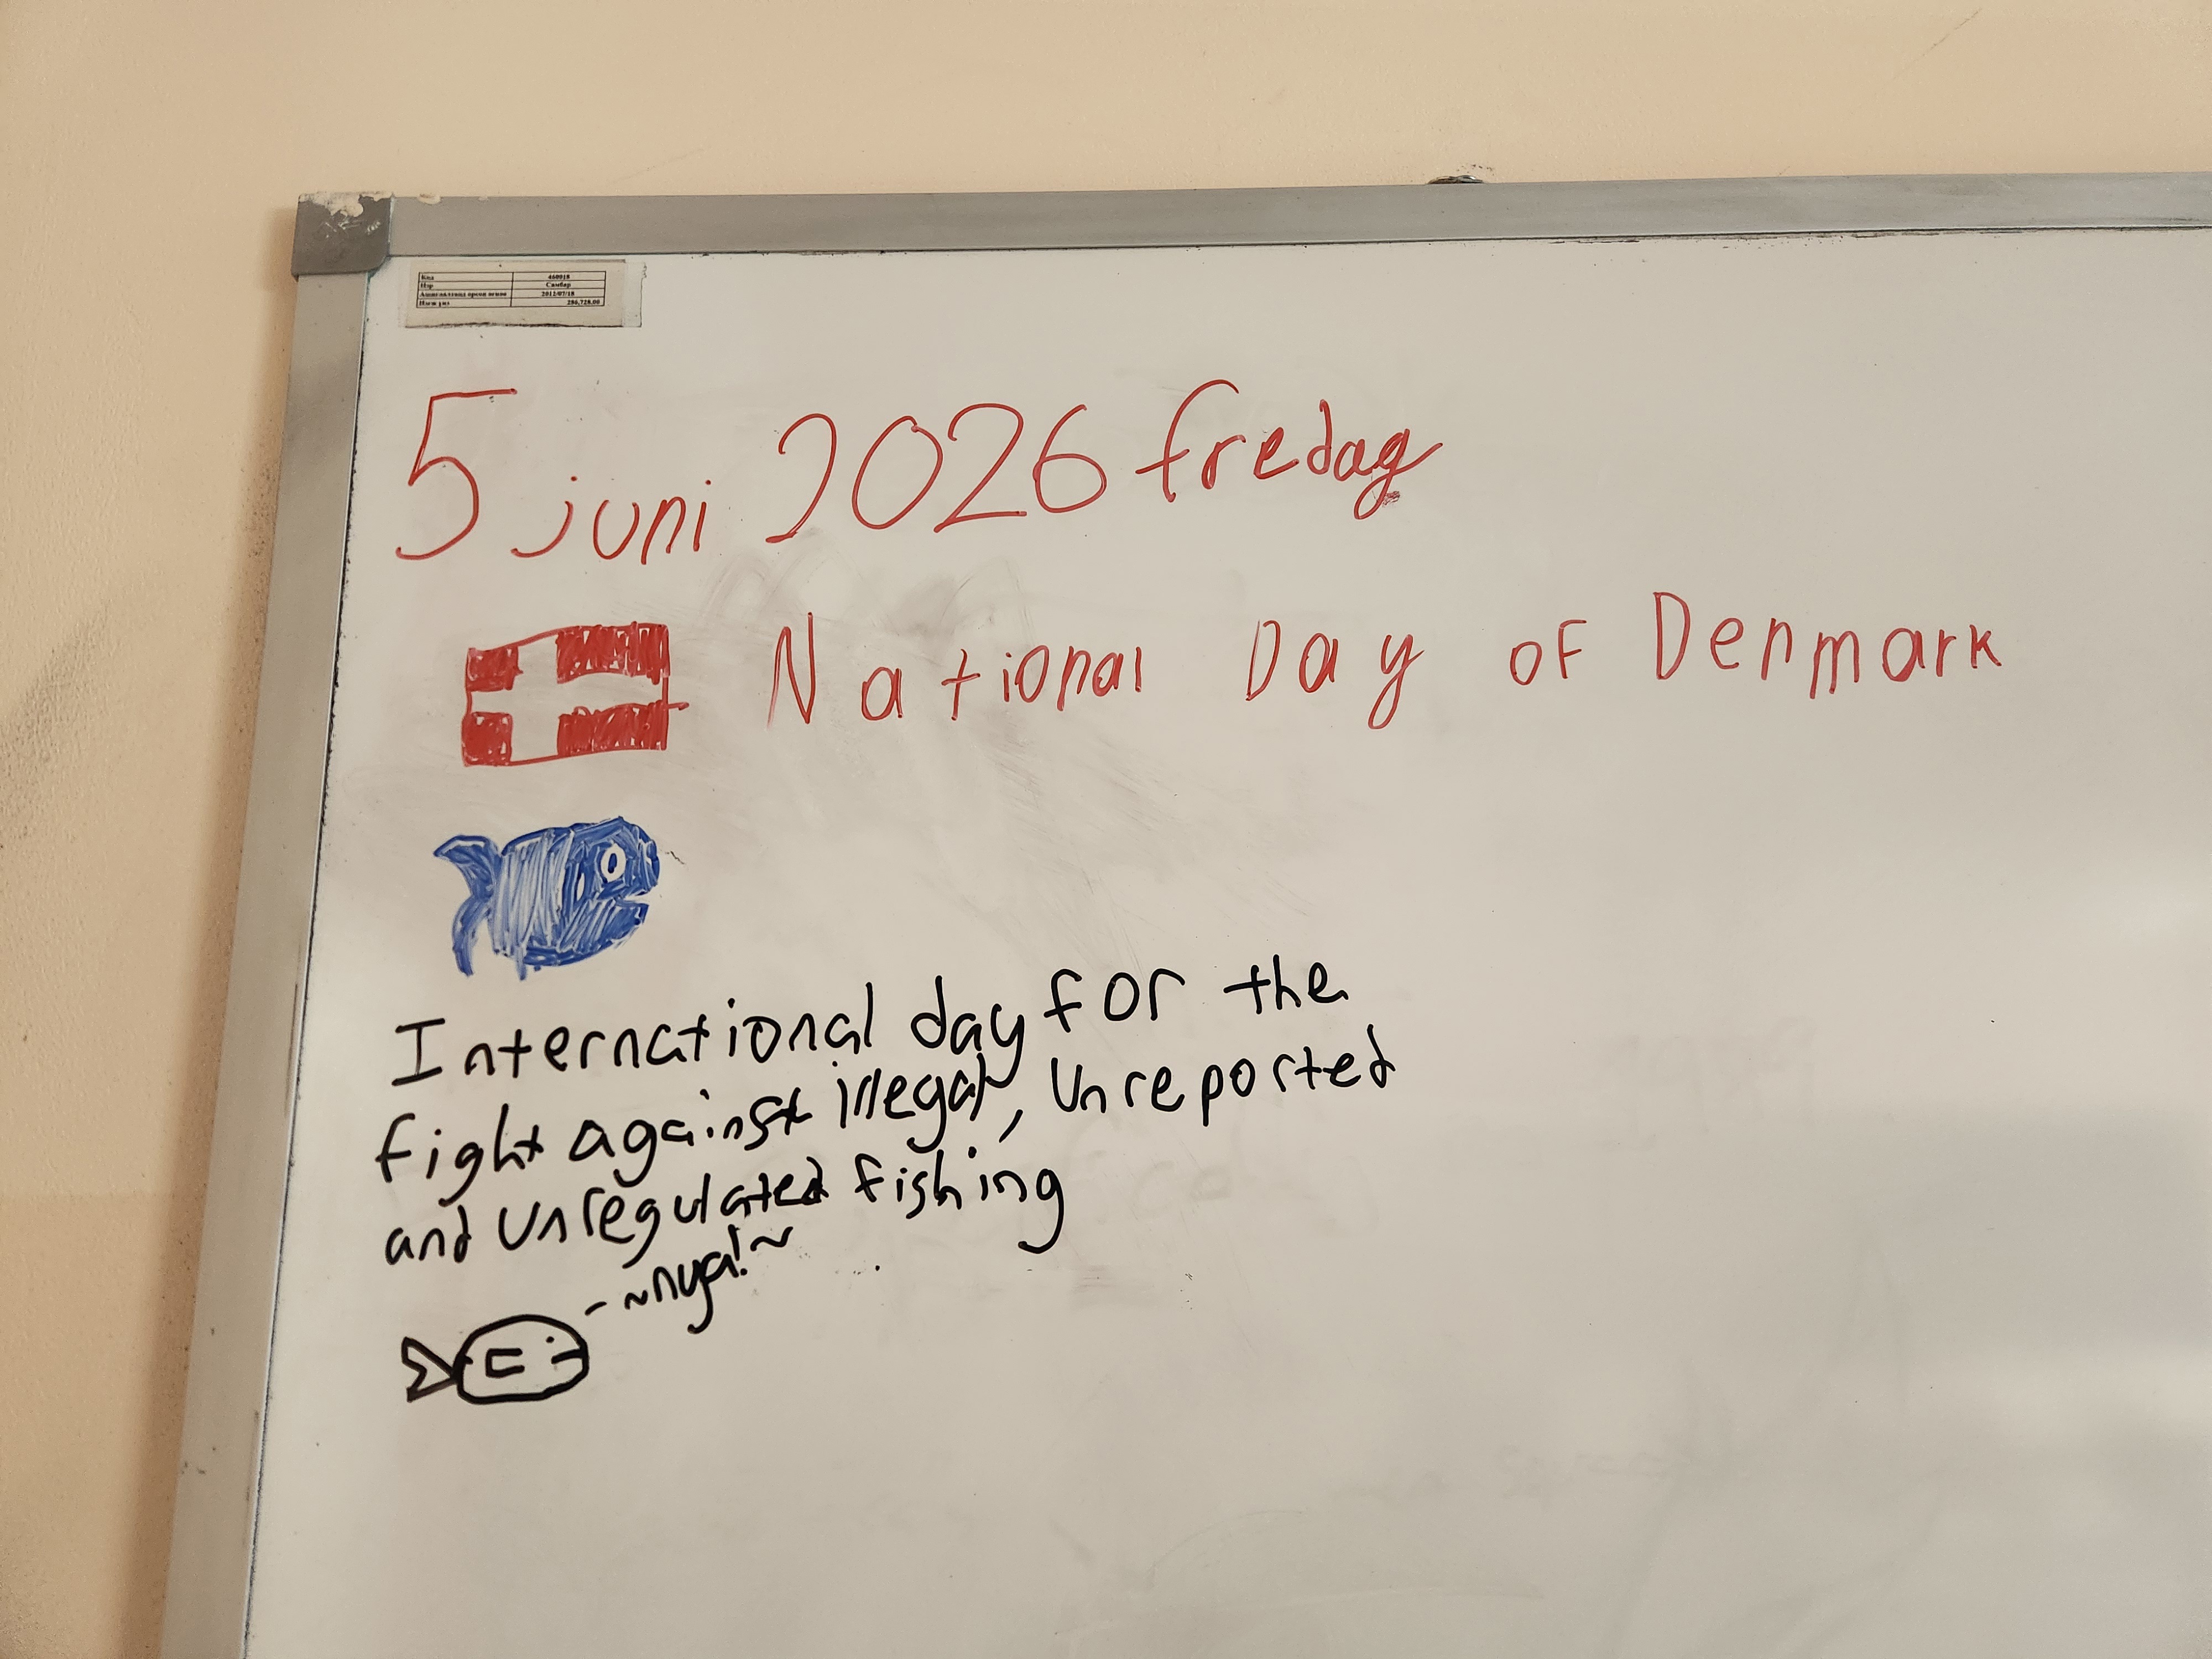 Код 460018
Нэр Самбар
Ашиглалтанд орсон огноо 2012/07/18
Нэгж үнэ 286,728.00
5 juni 2026 fredag
National Day of Denmark
International day for the
fight against illegal, unreported
and unregulated fishing
~nya!~